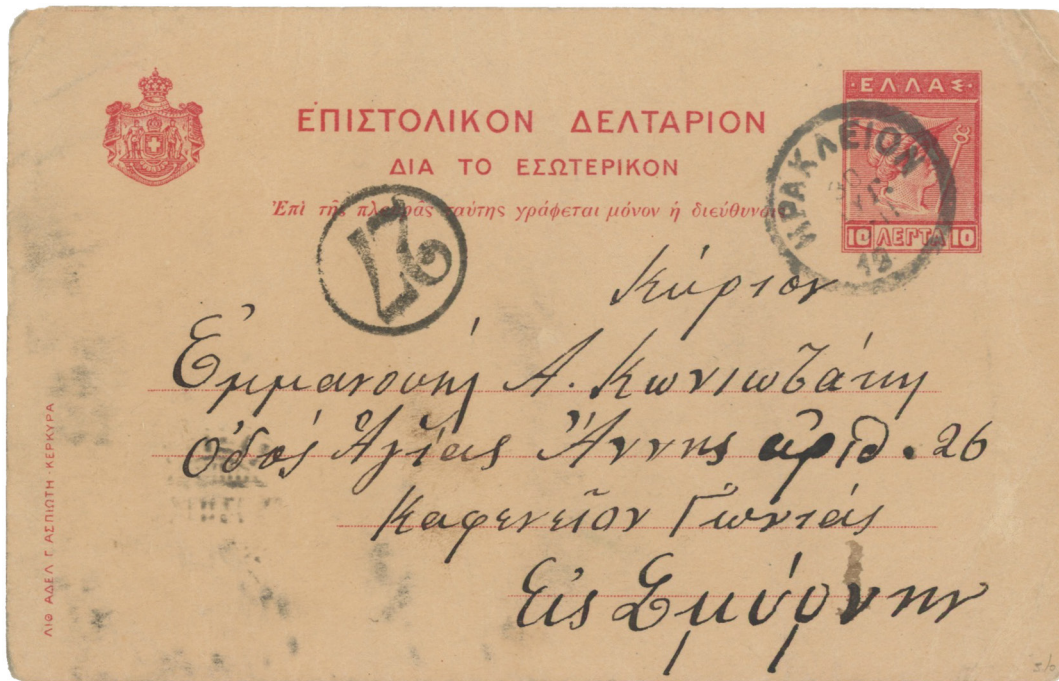 ·ΕΛΛΑΣ·
ΕΠΙΣΤΟΛΙΚΟΝ ΔΕΛΤΑΡΙΟΝ
ΔΙΑ ΤΟ ΕΣΩΤΕΡΙΚΟΝ
Ἐπὶ τῆς πλευρᾶς ταύτης γράφεται μόνον ἡ διεύθυνσις
10 ΛΕΠΤΑ 10
ΗΡΑΚΛΕΙΟΝ
12
27
Κύριον
Ἐμμανουὴλ Α. Κωνιωτάκην
Ὁδὸς Ἁγίας Ἄννης ἀριθ. 26
Καφενεῖον Γωνιάς
Εἰς Σμύρνην
ΛΙΘ ΑΔΕΛ Γ. ΑΣΠΙΩΤΗ·ΚΕΡΚΥΡΑ